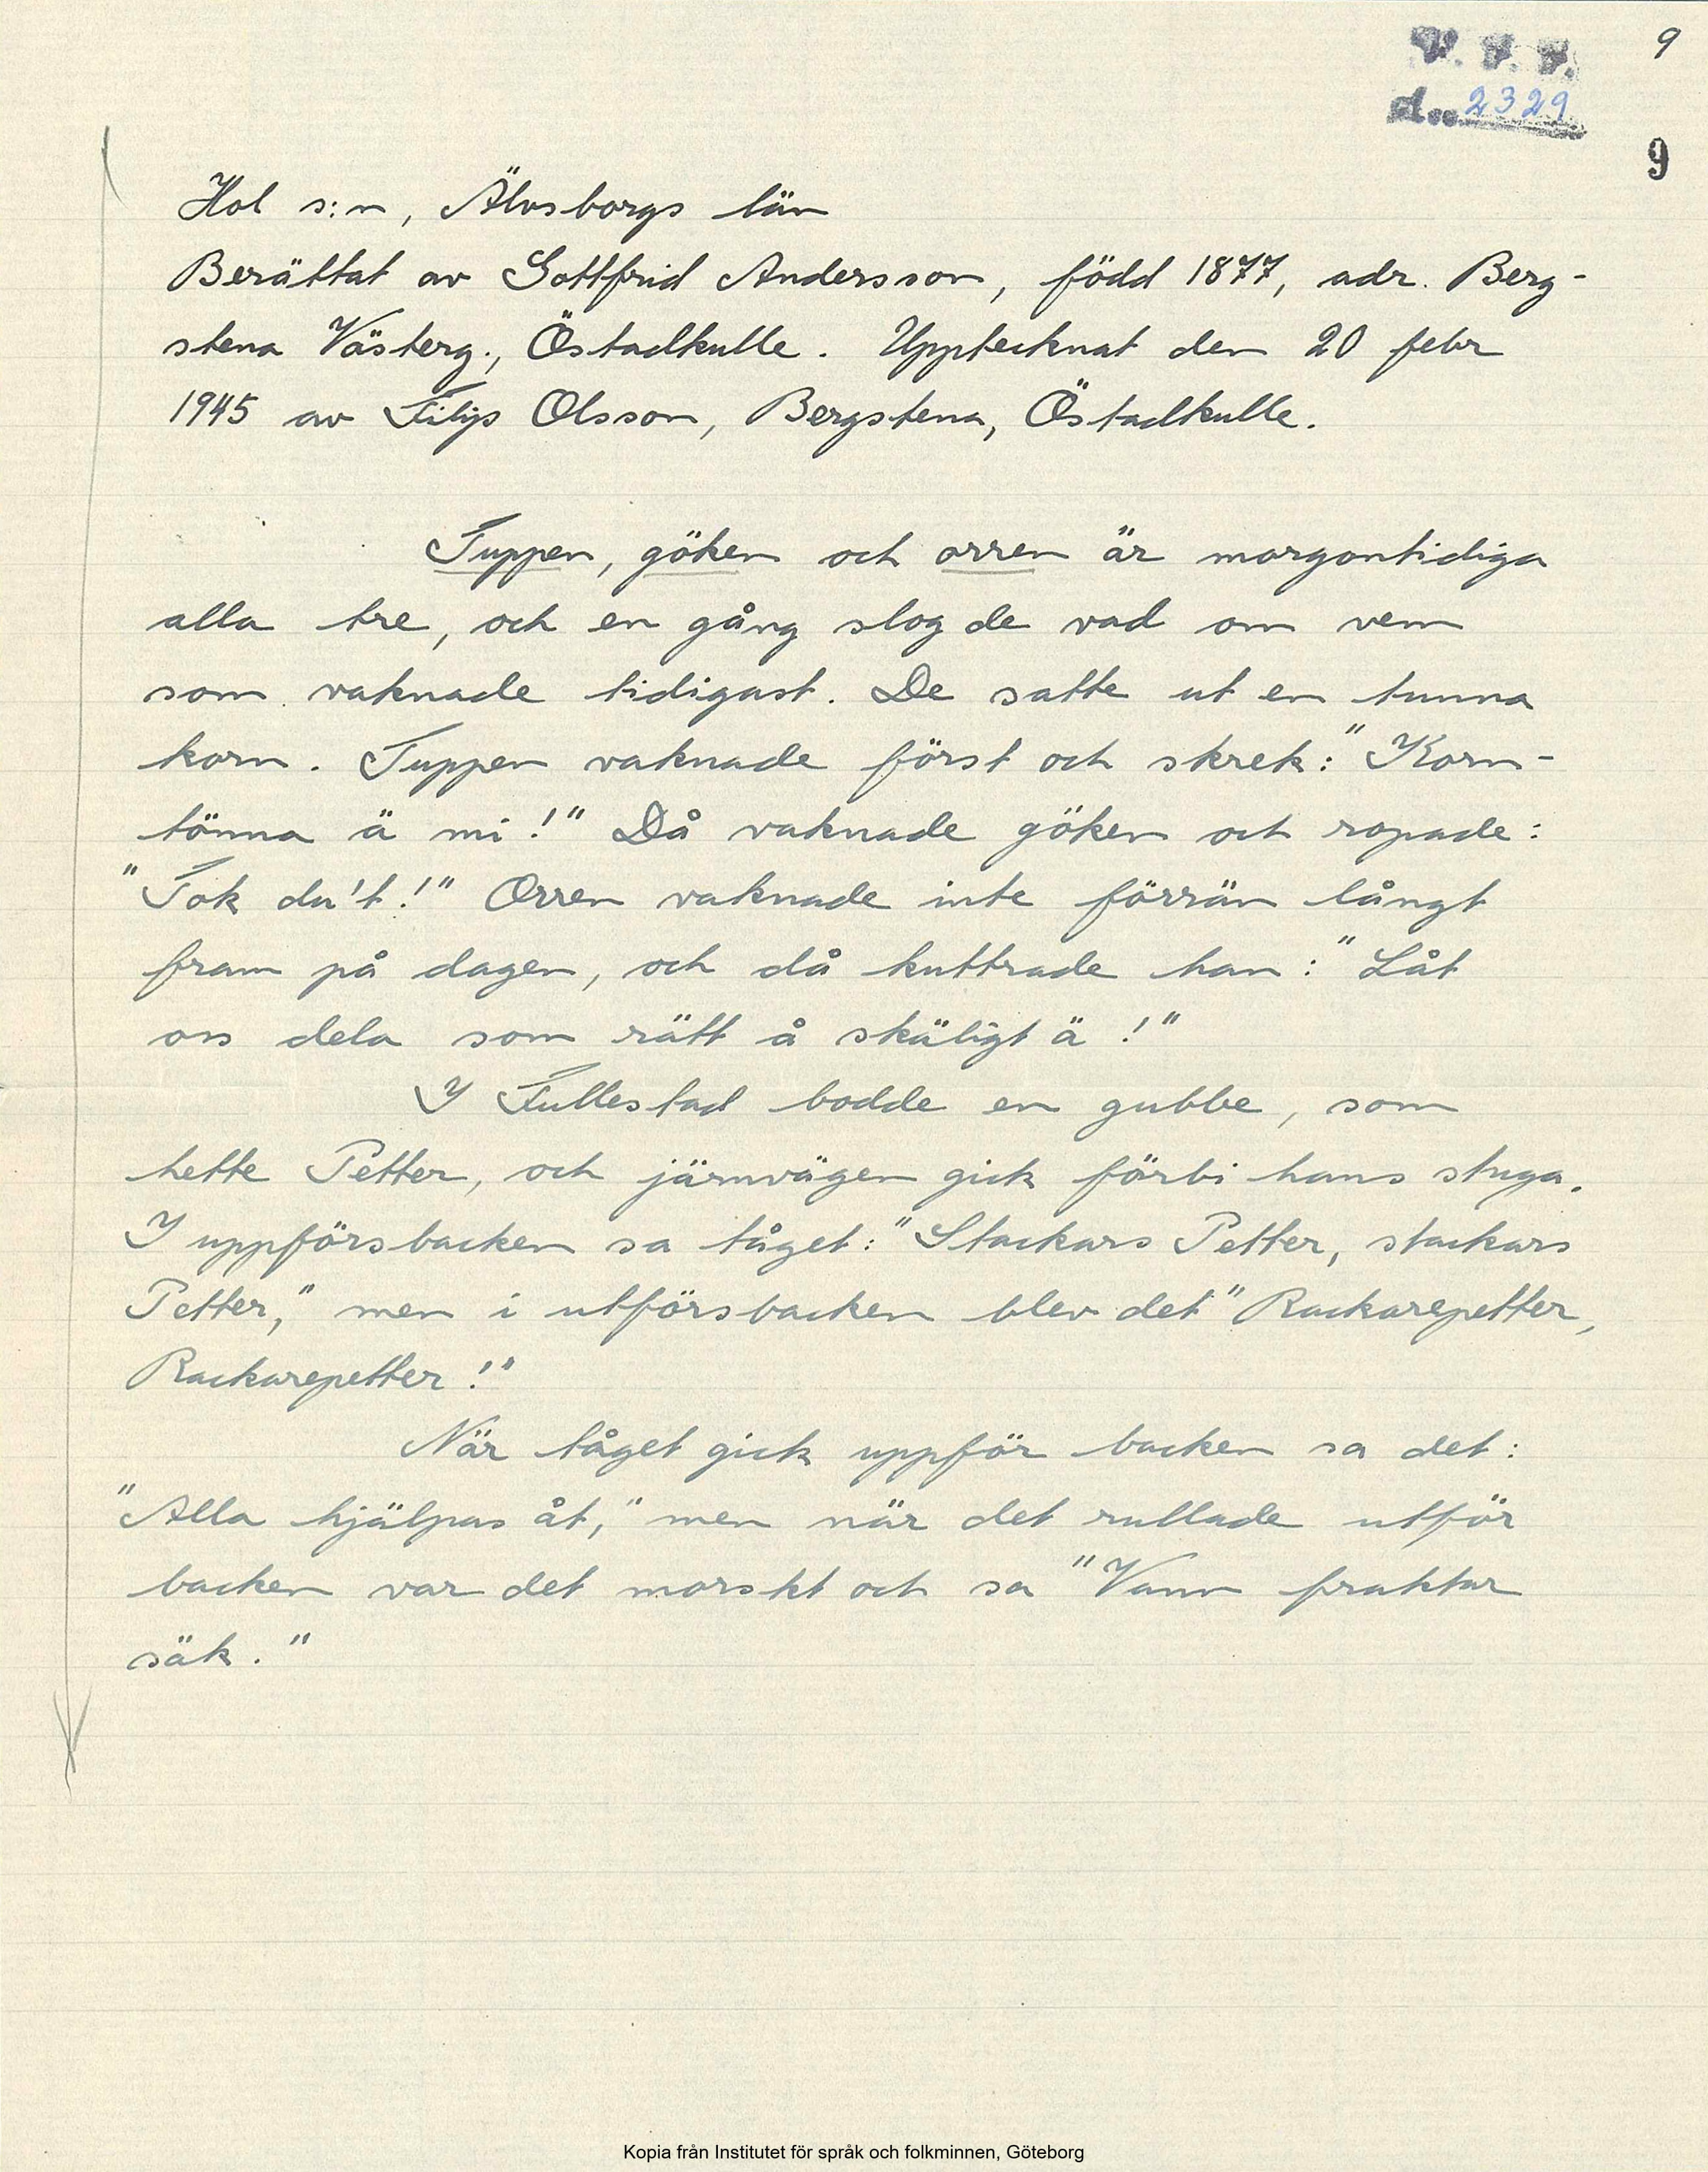 9
V. F. F.
d... 2329
9
Hol s:n, Älvsborgs län
Berättat av Gottfrid Andersson, född 1877, adr. Berg-
stena Västerg., Östadkulle. Upptecknat den 20 febr
1945 av Filips Olsson, Bergstena, Östadkulle.
Tuppen, göken och orren är morgontidiga
alla tre, och en gång slog de vad om vem
som vaknade tidigast. De satte ut en tunna
korn. Tuppen vaknade först och skrek: "Korn-
tönna ä mi!" Då vaknade göken och ropade:
"Tok du't!" Orren vaknade inte förrän långt
fram på dagen, och då kuttrade han: "Låt
oss dela som rätt å skäligt ä!"
I Fullestad bodde en gubbe, som
hette Petter, och järnvägen gick förbi hans stuga.
I uppförsbacken sa tåget: "Stackars Petter, stackars
Petter," men i utförsbacken blev det "Rackarepetter,
Rackarepetter!"
När tåget gick uppför backen sa det:
"Alla hjälpas åt," men när det rullade utför
backen var det morskt och sa "Vann fraktar
säk."
Kopia från Institutet för språk och folkminnen, Göteborg